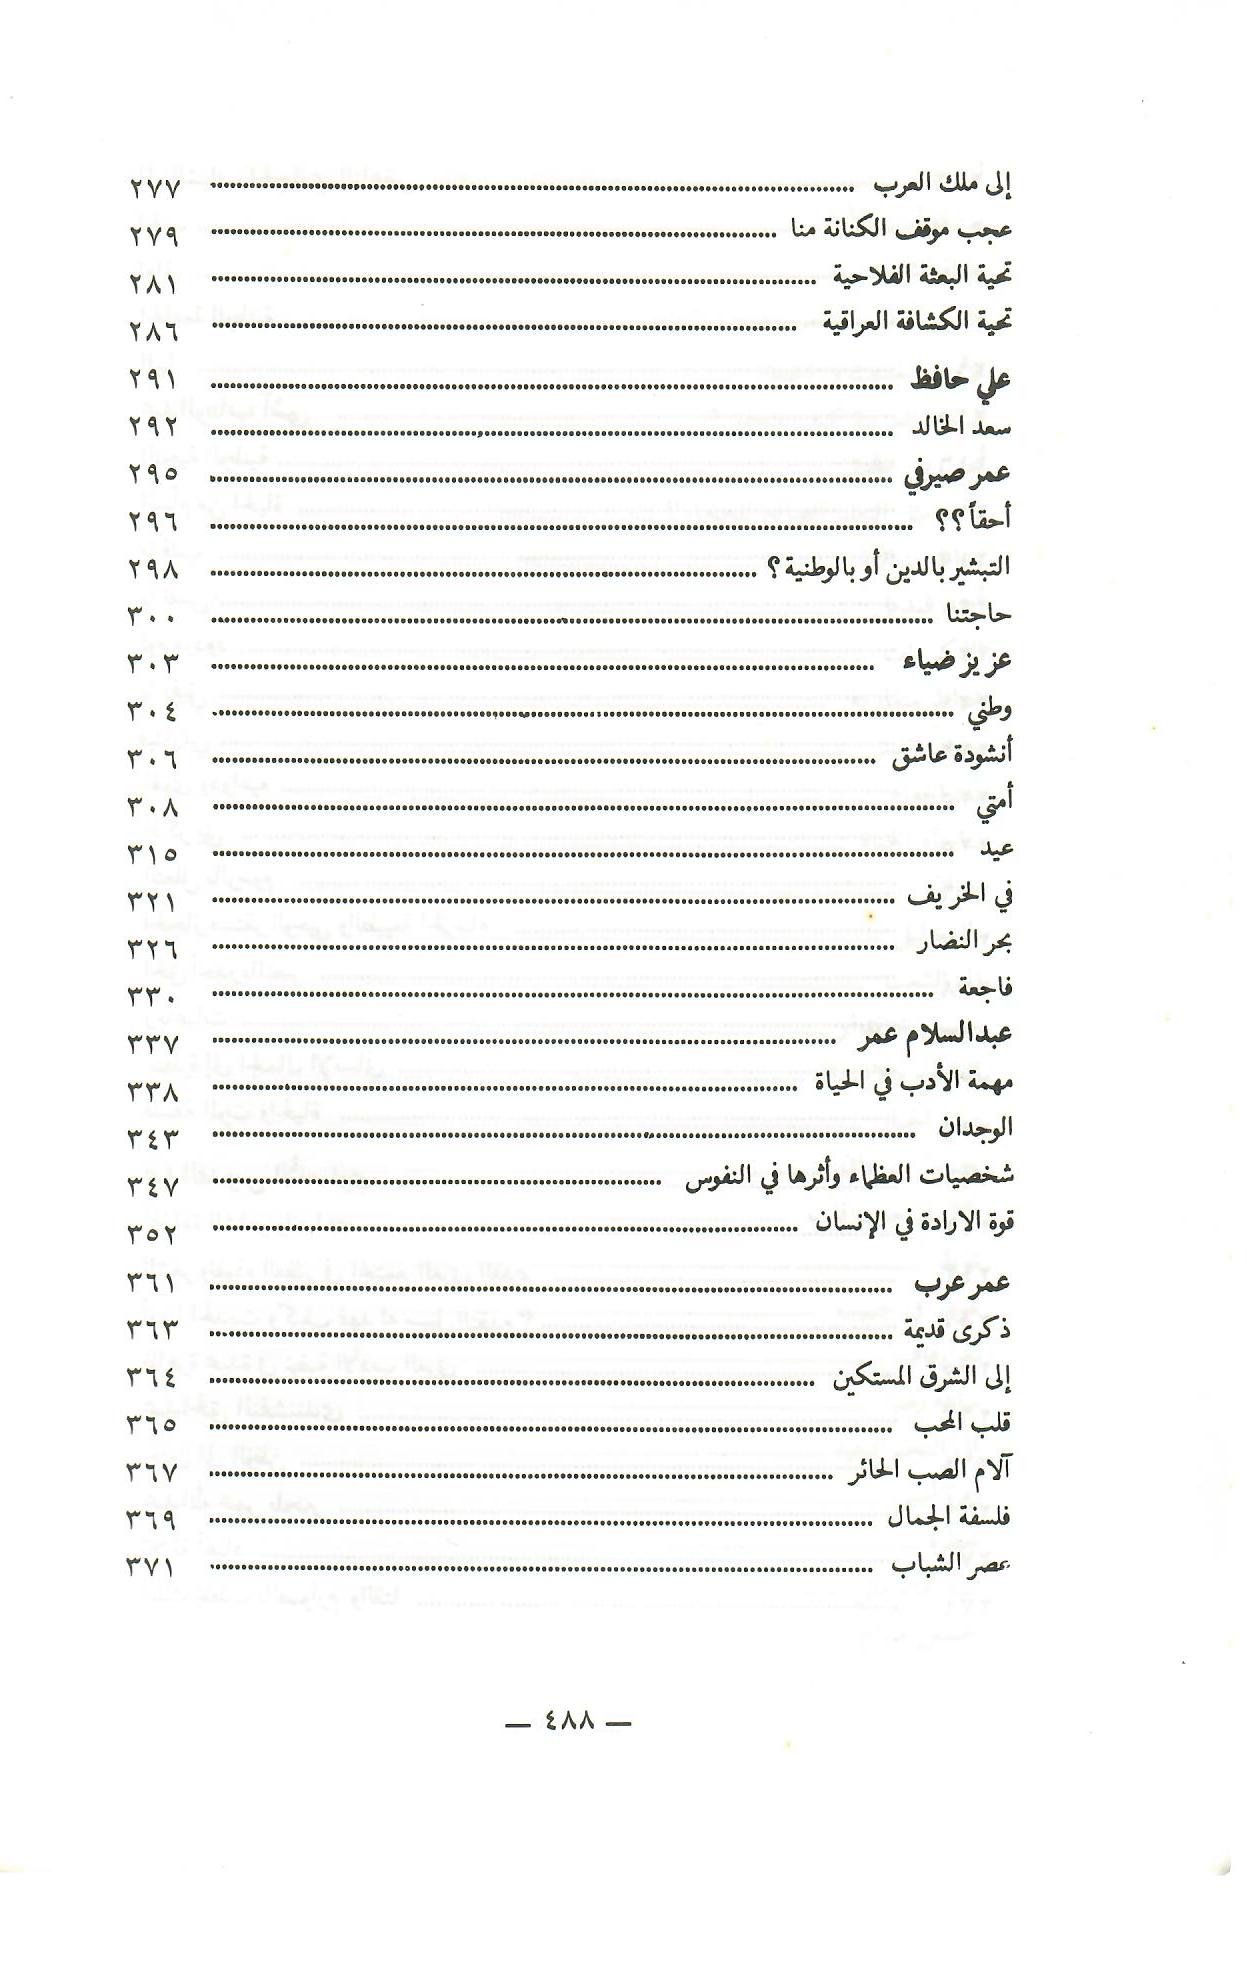 إلى ملك العرب ........ ٢٧٧
عجب موقف الكنانة منا ........ ٢٧٩
تحية البعثة الفلاحية ........ ٢٨١
تحية الكشافة العراقية ........ ٢٨٦
علي حافظ ........ ٢٩١
سعد الخالد ........ ٢٩٢
عمر صيرفي ........ ٢٩٥
أحقاً؟؟ ........ ٢٩٦
التبشير بالدين أو بالوطنية؟ ........ ٢٩٨
حاجتنا ........ ٣٠٠
عزيز ضياء ........ ٣٠٣
وطني ........ ٣٠٤
أنشودة عاشق ........ ٣٠٦
أمتي ........ ٣٠٨
عيد ........ ٣١٥
في الخريف ........ ٣٢١
بحر النضار ........ ٣٢٦
فاجعة ........ ٣٣٠
عبدالسلام عمر ........ ٣٣٧
مهمة الأدب في الحياة ........ ٣٣٨
الوجدان ........ ٣٤٣
شخصيات العظماء وأثرها في النفوس ........ ٣٤٧
قوة الارادة في الإنسان ........ ٣٥٢
عمر عرب ........ ٣٦١
ذكرى قديمة ........ ٣٦٣
إلى الشرق المستكين ........ ٣٦٤
قلب المحب ........ ٣٦٥
آلام الصب الحائر ........ ٣٦٧
فلسفة الجمال ........ ٣٦٩
عصر الشباب ........ ٣٧١
— ٤٨٨ —